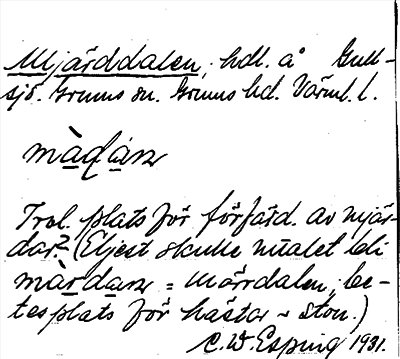 Mjärddalen, hdl. å Gull-
sjö. Grums sn. Grums hd. Värml. l.
màḍạn
Trol. plats för förfärd. av mjär-
dar? (Eljest skulle målet bli
mà̱rda̱n = Märrdalen, be-
tesplats för hästar - ston.)
C. W. Esping 1931.